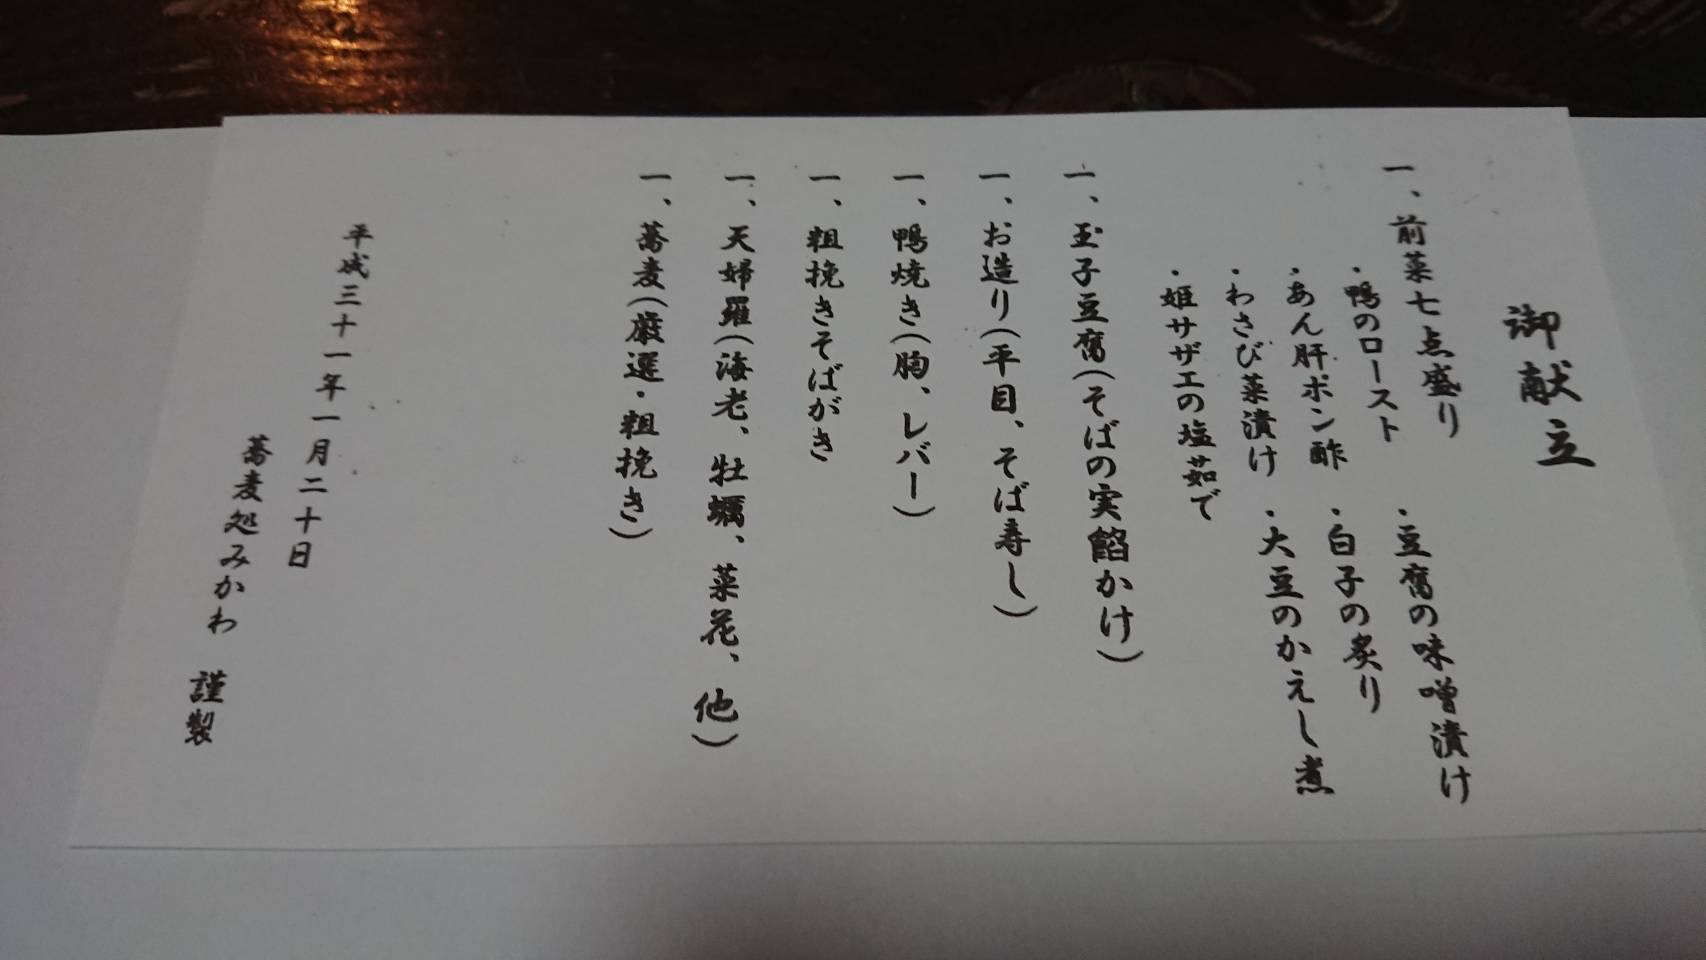 御献立
一、前菜七点盛り
・鴨のロースト ・豆腐の味噌漬け
・あん肝ポン酢 ・白子の炙り
・わさび菜漬け ・大豆のかえし煮
・姫サザエの塩茹で
一、玉子豆腐(そばの実餡かけ)
一、お造り(平目、そば寿し)
一、鴨焼き(胸、レバー)
一、粗挽きそばがき
一、天婦羅(海老、牡蠣、菜花、他)
一、蕎麦(厳選・粗挽き)
平成三十一年一月二十日
蕎麦処みかわ 謹製